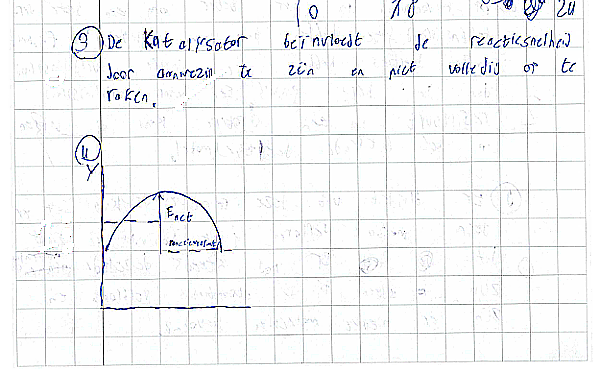 10 18 24
3 De Katalysator beïnvloedt de reactiesnelheid
door aanwezig te zijn en niet volledig op te
raken.
4
Y
Eact